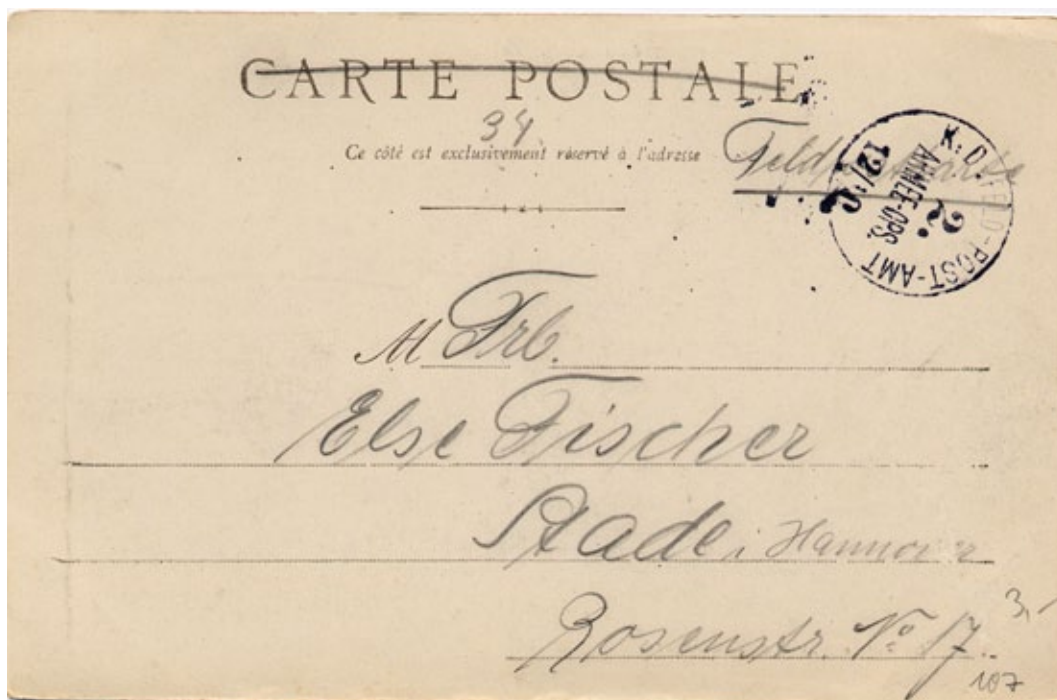 CARTE POSTALE
34
Ce côté est exclusivement réservé à l'adresse
K. D. FELD-POST-AMT
2.
ARMEE-CPS.
12/10
M Frl.
Else Fischer
Stade i Hannover
Rosenstr. No 17.
3,-
107